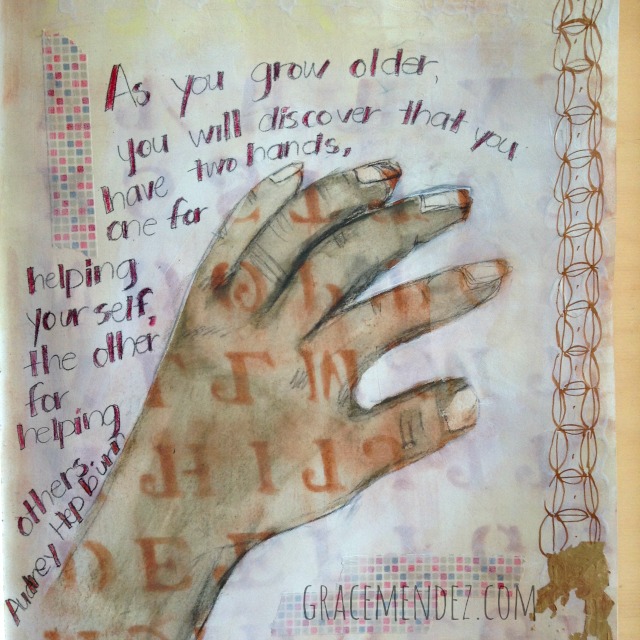 As you grow older,
you will discover that you
have two hands,
one for
helping
yourself,
the other
for
helping
others.
Audrey Hepburn
GRACEMENDEZ.COM